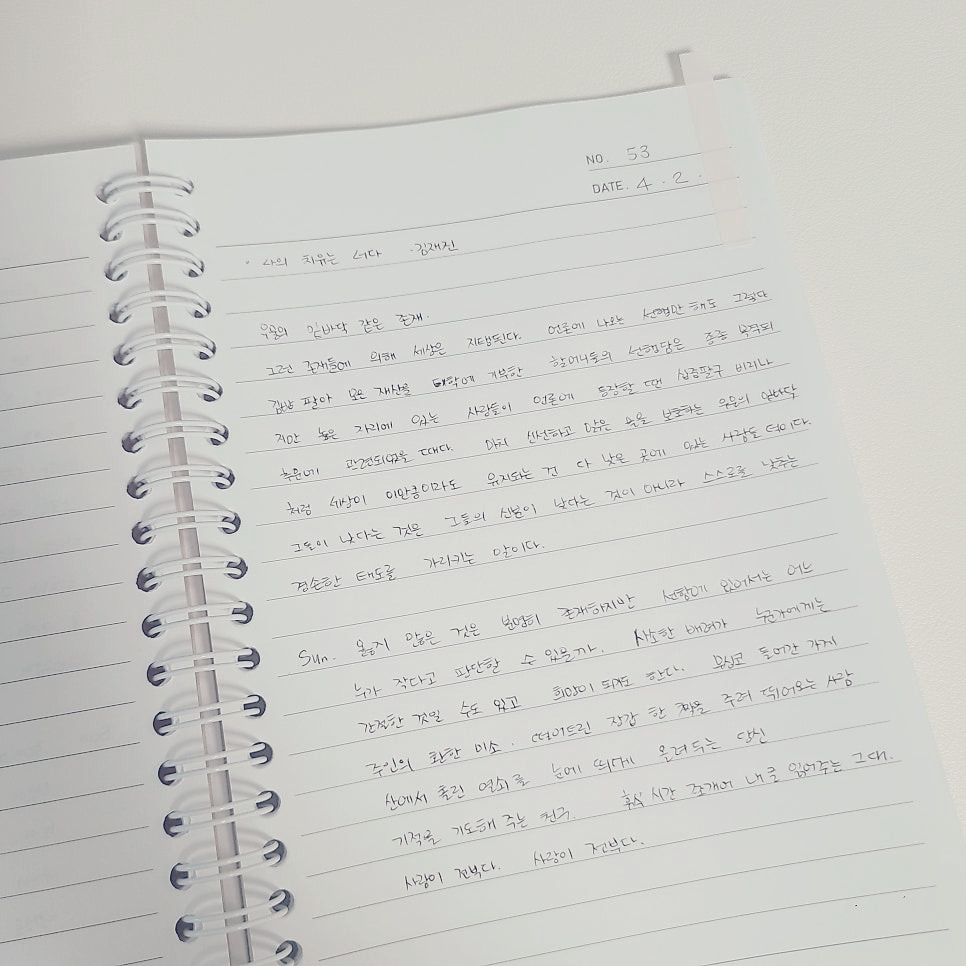 NO. 53
DATE. 4 . 2 .
· 나의 치유는 너다 · 김재진
우물의 밑바닥 같은 존재.
그런 존재들에 의해 세상은 지탱된다. 언론에 나오는 선행만 해도 그렇다
김밥 팔아 모은 재산을 대학에 기부한 할머니들의 선행담은 종종 목격되
지만 높은 자리에 있는 사람들이 언론에 등장할 땐 십중팔구 비리나
추문에 관련되었을 때다. 마치 신선하고 맑은 물을 보호하는 우물의 밑바닥
처럼 세상이 이만큼이라도 유지되는 건 다 낮은 곳에 있는 사람들 덕이다.
그들이 낮다는 것은 그들의 신분이 낮다는 것이 아니라 스스로를 낮추는
겸손한 태도를 가리키는 말이다.
Sun. 옳지 않은 것은 분명히 존재하지만 선함에 있어서는 어느
누가 작다고 판단할 수 있을까. 사소한 배려가 누군가에게는
간절한 것일 수도 있고 희망이 되기도 한다. 무심코 들어간 가게
주인의 환한 미소. 떨어트린 장갑 한 짝을 주려 뛰어오는 사람
산에서 흘린 열쇠를 눈에 띄게 올려두는 당신
기적을 기도해 주는 친구. 휴식 시간 쪼개어 내 글 읽어주는 그대.
사랑이 전부다. 사랑이 전부다.